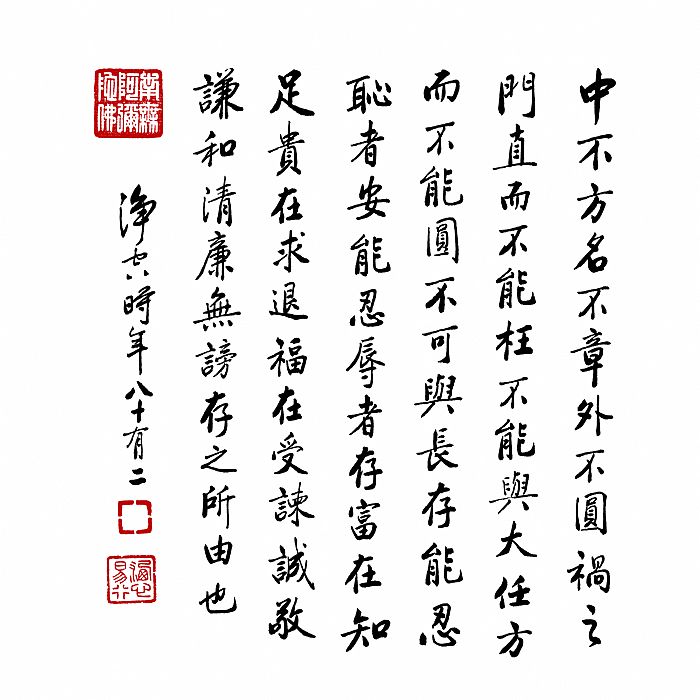 中不方名不章外不圓禍之
門直而不能枉不能與大任方
而不能圓不可與長存能忍
恥者安能忍辱者存富在知
足貴在求退福在受諫誠敬
謙和清廉無謗存之所由也
淨空時年八十有二
南無阿彌陀佛